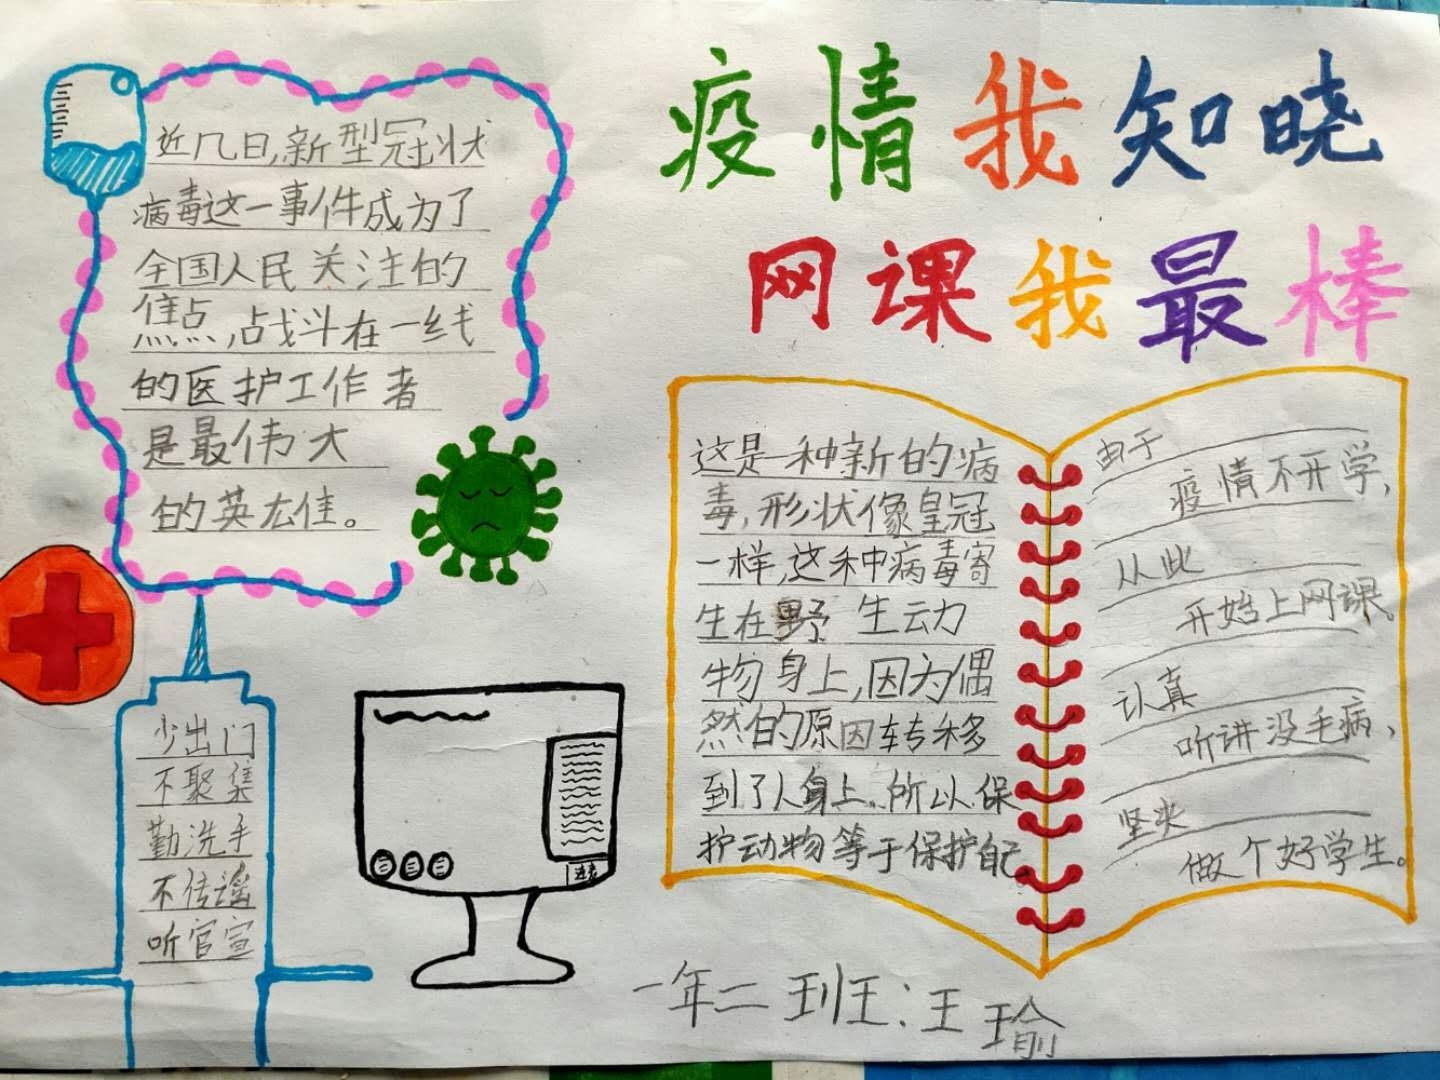 疫情我知晓
网课我最棒
近几日,新型冠状
病毒这一事件成为了
全国人民关注的
焦点,占战斗在一线
的医护工作者
是最伟大
的英雄。
少出门
不聚集
勤洗手
不传谣
听官宣
这是一种新的病
毒,形状像皇冠
一样,这种病毒寄
生在野生动
物身上,因为偶
然的原因转移
到了人身上。所以保
护动物等于保护自己
由于
疫情不开学,
从此
开始上网课。
认真
听讲没毛病,
坚决
做个好学生。
一年二班:王瑜